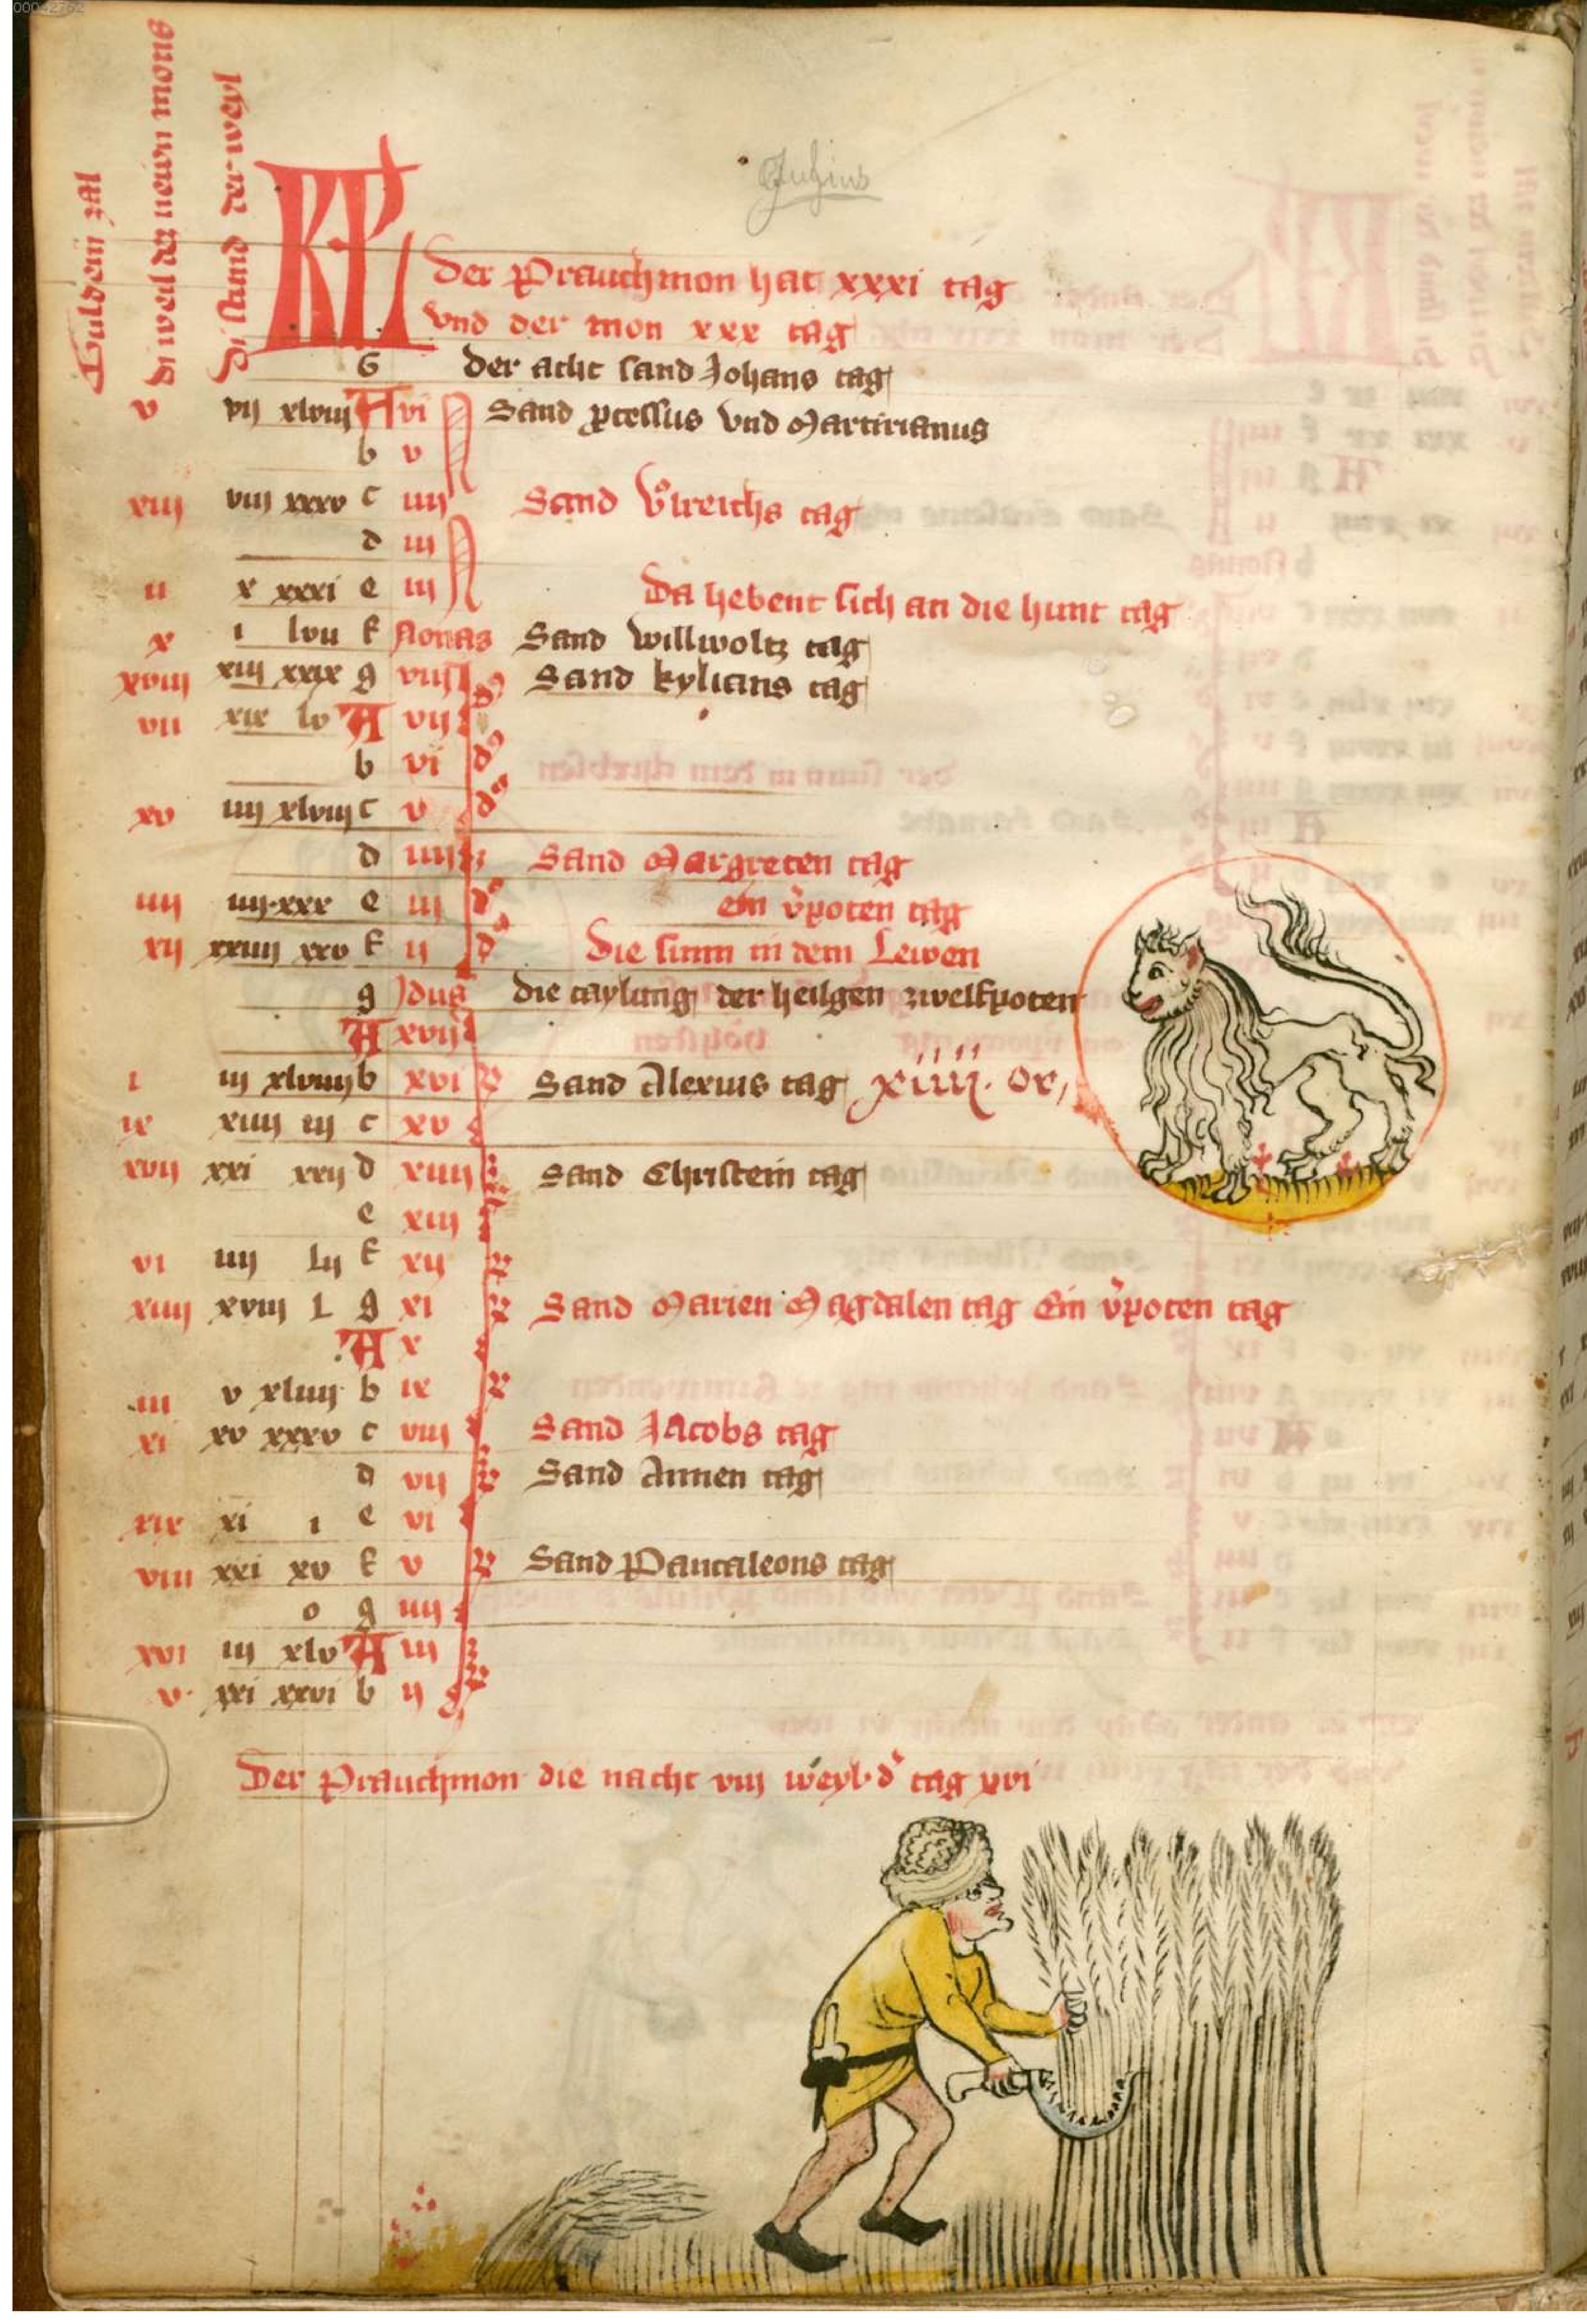 00042762
Guldein zal
di weil der newn mons
di stund der weyl
Julius
KL
Der Prauchmon hat xxxi tag
vnd der mon xxx tag
G der acht sand Johans tag
v vij xlviij A vi Sand pcessus vnd Martirianus
b v
xiij viij xxxv c iiij Sand Vlreichs tag
d iij
ii x xxxi e iij Da hebent sich an die hunt tag
x i lvii f Nonas Sand willwoltz tag
xviij xiij xxix g viij Sand kylians tag
vii xix lv A vij
b vi
xv iiij xlviij c v
d iiij Sand Margreten tag
iiij iiij·xxx e iij ein v̓poten tag
xij xxiiij xxv f ij Die sunn in dem Lewen
g Jdus die taylung der heilgen zwelfpoten
A xvij
i iij xlviiij b xvi Sand Alexius tag xiiij. or,
ix xiiij iij c xv
xvij xxi xxij d xiiij Sand Christein tag
e xiij
vi iiij lij f xij
xiiij xviij l g xi Sand Marien Magdalen tag Ein v̓poten tag
A x
iii v xliiij b ix
xi xv xxxv c viij Sand Jacobs tag
d vij Sand Annen tag
xix xi i e vi
viii xxi xv f v Sand Pantaleons tag
o g iiij
xvi iij xlv A iij
v· xxi xxvi b ij
Der Prauchmon die nacht viij weyl· d̓ tag xvi